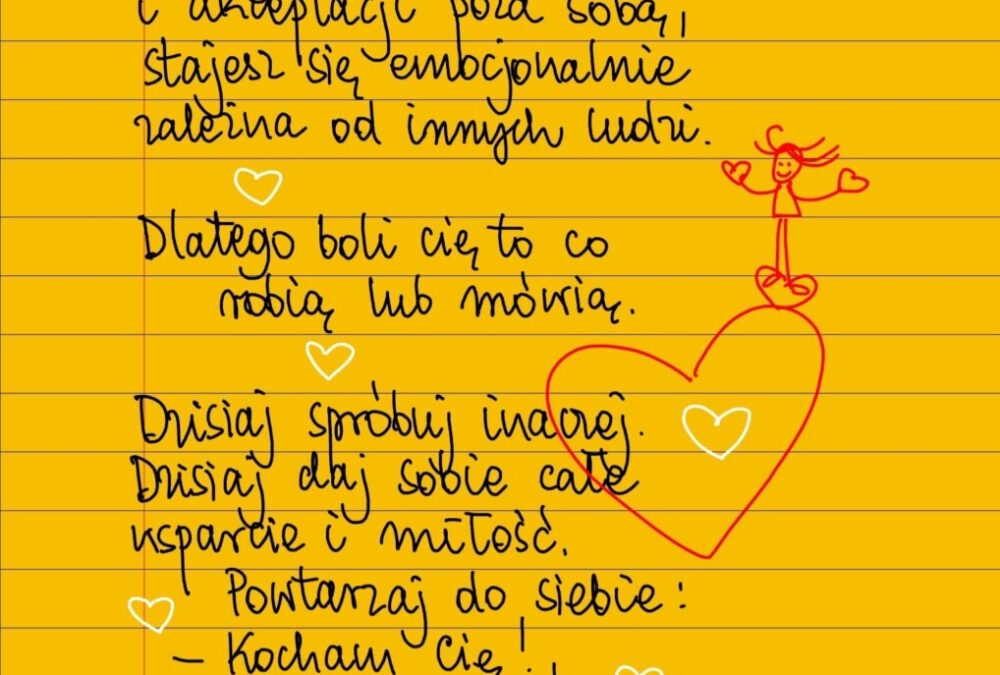 i akceptacji poza sobą,
stajesz się emocjonalnie
zależna od innych ludzi.
Dlatego boli cię to co
robią lub mówią.
Dzisiaj spróbuj inaczej.
Dzisiaj daj sobie całe
wsparcie i miłość.
Powtarzaj do siebie:
- Kocham Cię!